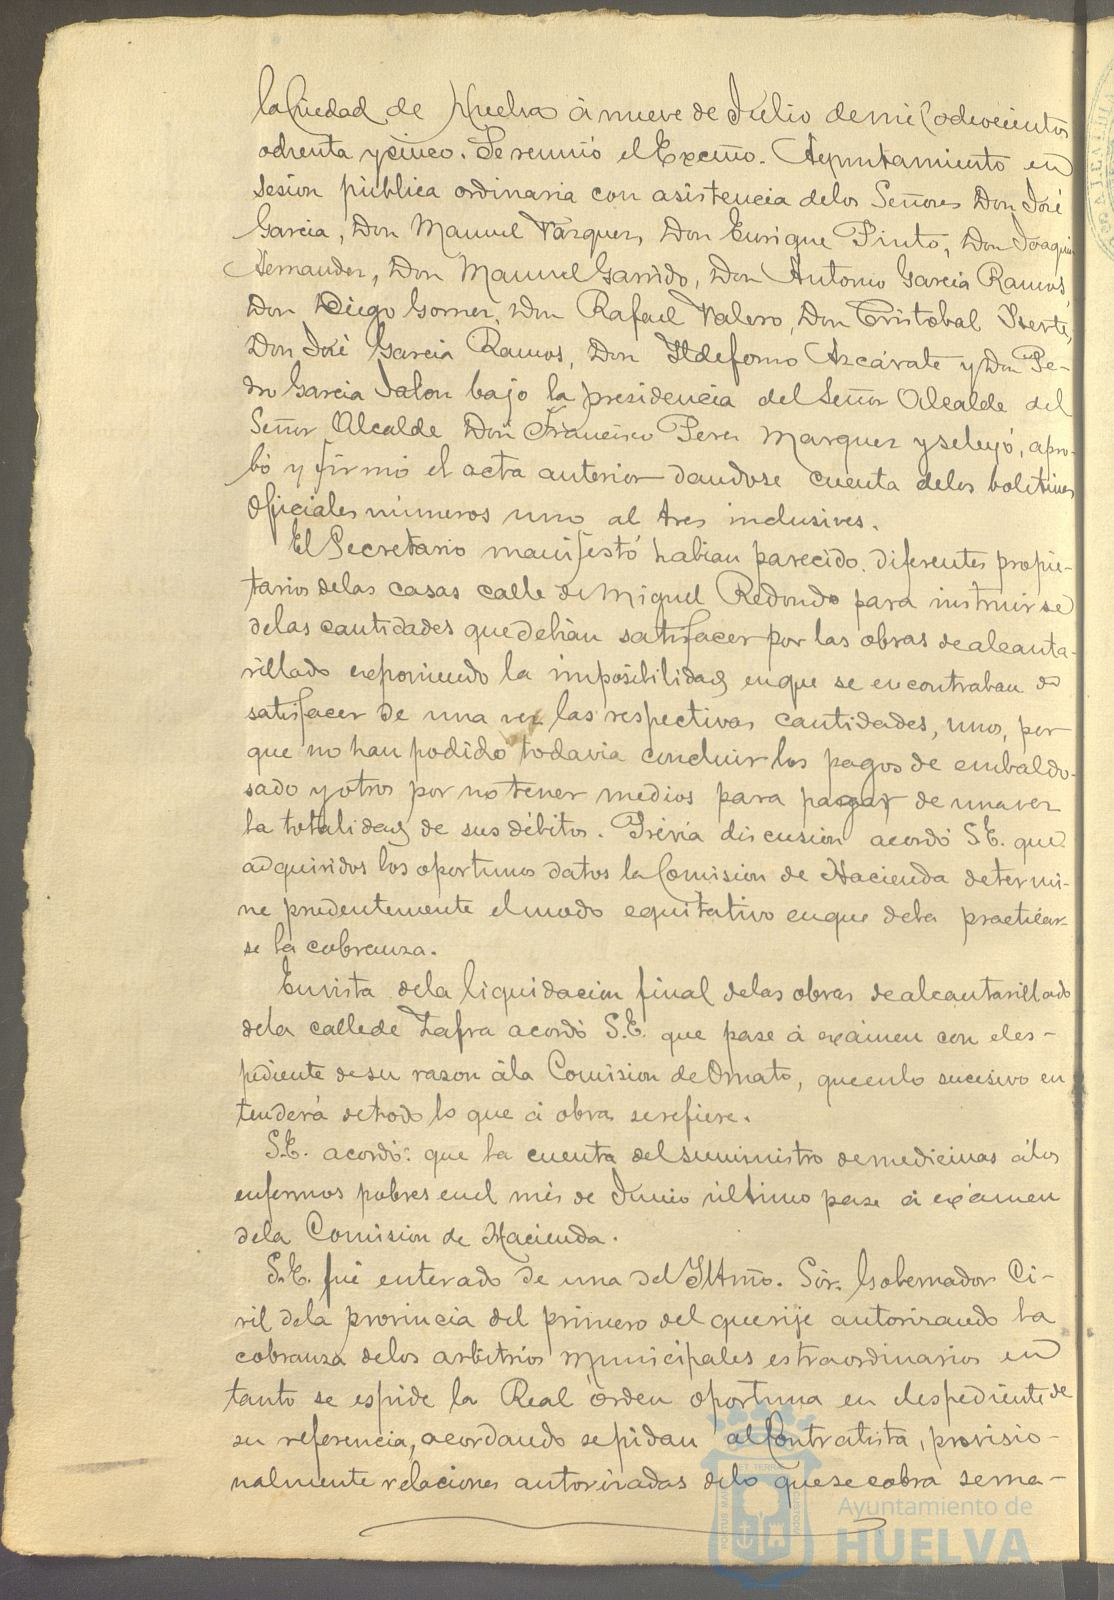 la Ciudad de Huelva á nueve de Julio de mil ochocientos
ochenta y cinco. Se reunió el Excmo. Ayuntamiento en
sesion pública ordinaria con asistencia de los Señores Don José
Garcia, Don Manuel Vazquez, Don Enrique Pinto, Don Joaquin
Hernandez, Don Manuel Garrido, Don Antonio Garcia Ramos,
Don Diego Gomez, Don Rafael Valero, Don Cristobal
Don José Garcia Ramos, Don Ildefonso Azcárate y Don Pe-
dro Garcia Jalon bajo la presidencia del Señor Alcalde del
Señor Alcalde Don Francisco Perez Marquez y se leyó, apro-
bó y firmó el acta anterior dandose cuenta de los boletines
oficiales números uno al tres inclusives.
El Secretario manifestó habian parecido diferentes propie-
tarios de las casas calle de Miguel Redondo para instruirse
de las cantidades que debian satisfacer por las obras de alcanta-
rillado exponiendo la imposibilidad en que se encontraban de
satisfacer de una vez las respectivas cantidades, unos, por
que no han podido todavia concluir los pagos de embaldo-
sado y otros por no tener medios para pagar de una vez
la totalidad de sus débitos. Prévia discusion acordó S.E. que
adquiridos los oportunos datos la Comision de Hacienda determi-
ne prudentemente el modo equitativo en que deba practicar-
se la cobranza.
En vista de la liquidacion final de las obras de alcantarillado
de la calle de Zafra acordó S.E. que pase á exámen con el es-
pediente de su razon á la Comision de Ornato, que en lo sucesivo en
tenderá de todo lo que á obras se refiere.
S.E. acordó: que la cuenta del suministro de medicinas á los
enfermos pobres en el mes de Junio último pase á exámen
de la Comision de Hacienda.
S.E. fué enterado de una del Iltmo. Sór. Gobernador Ci-
vil de la provincia del primero del que rije autorizando la
cobranza de los arbitrios municipales estraordinarios en
tanto se espide la Real órden oportuna en el espediente de
su referencia, acordando se pidan al Contratista, provisio-
nalmente relaciones autorizadas de lo que se cobra sema-
Ayuntamiento de
HUELVA